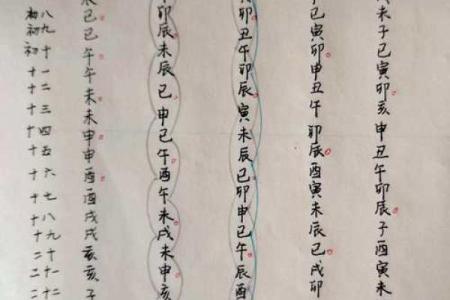 初八
初九
初十
十一
十二
十三
十四
十五
十六
十七
十八
十九
二十
二十一
二十二
辰巳巳午午未未申申酉酉戌戌亥亥子
卯辰未辰巳申巳午酉午未戌未申亥
卯丑午卯辰寅未辰巳卯申巳午辰酉
子巳寅卯申丑午卯辰酉寅未辰巳戌卯
未子巳寅卯亥申丑午卯辰子酉寅未